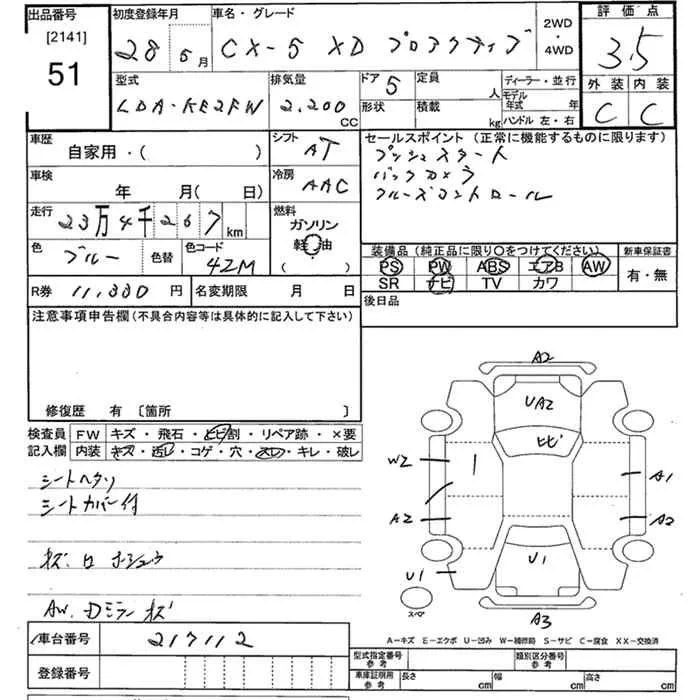 出品番号
[2141]
51
初度登録年月
28 5月
車名・グレード
CX-5 XD プロアクティブ
2WD
・
4WD
評価点
3.5
外装 内装
C C
型式
LDA-KE2FW
排気量
2,200
CC
ドア
5
形状
定員
人
積載
kg
ディーラー・並行
モデル
年式 年
ハンドル 左・右
車歴
自家用・( )
車検
年 月(日)
走行
23万4千267
km
色
ブルー
色替
色コード
42M
シフト
AT
冷房
AAC
燃料
ガソリン
軽油
( )
セールスポイント (正常に機能するものに限ります)
プッシュスタート
バックカメラ
クルーズコントロール
装備品 (純正品に限り〇をつけてください)
PS PW ABS エアB AW
SR ナビ TV カワ
新車保証書
有・無
R券 11,330 円
名変期限 月 日
後日品
注意事項申告欄 (不具合内容等は具体的に記入して下さい)
修復歴 有 〔箇所 〕
検査員
記入欄
FW キズ・飛石・ヒビ割・リペア跡・×要
内装 キズ・汚レ・コゲ・穴・スレ・キレ・破レ
シートヘタリ
シートカバー付
AW. Dミラーキズ
A2
UA2
ヒビ
W2
A1
A2
A2
U1
U1
スペア
A3
A-キズ E-エクボ U-凹み W-補修跡 S-サビ C-腐食 XX-交換済
車台番号
217112
登録番号
型式指定番号
参考
類別区分番号
参考
車庫証明用
参考
長さ cm
幅 cm
高さ cm